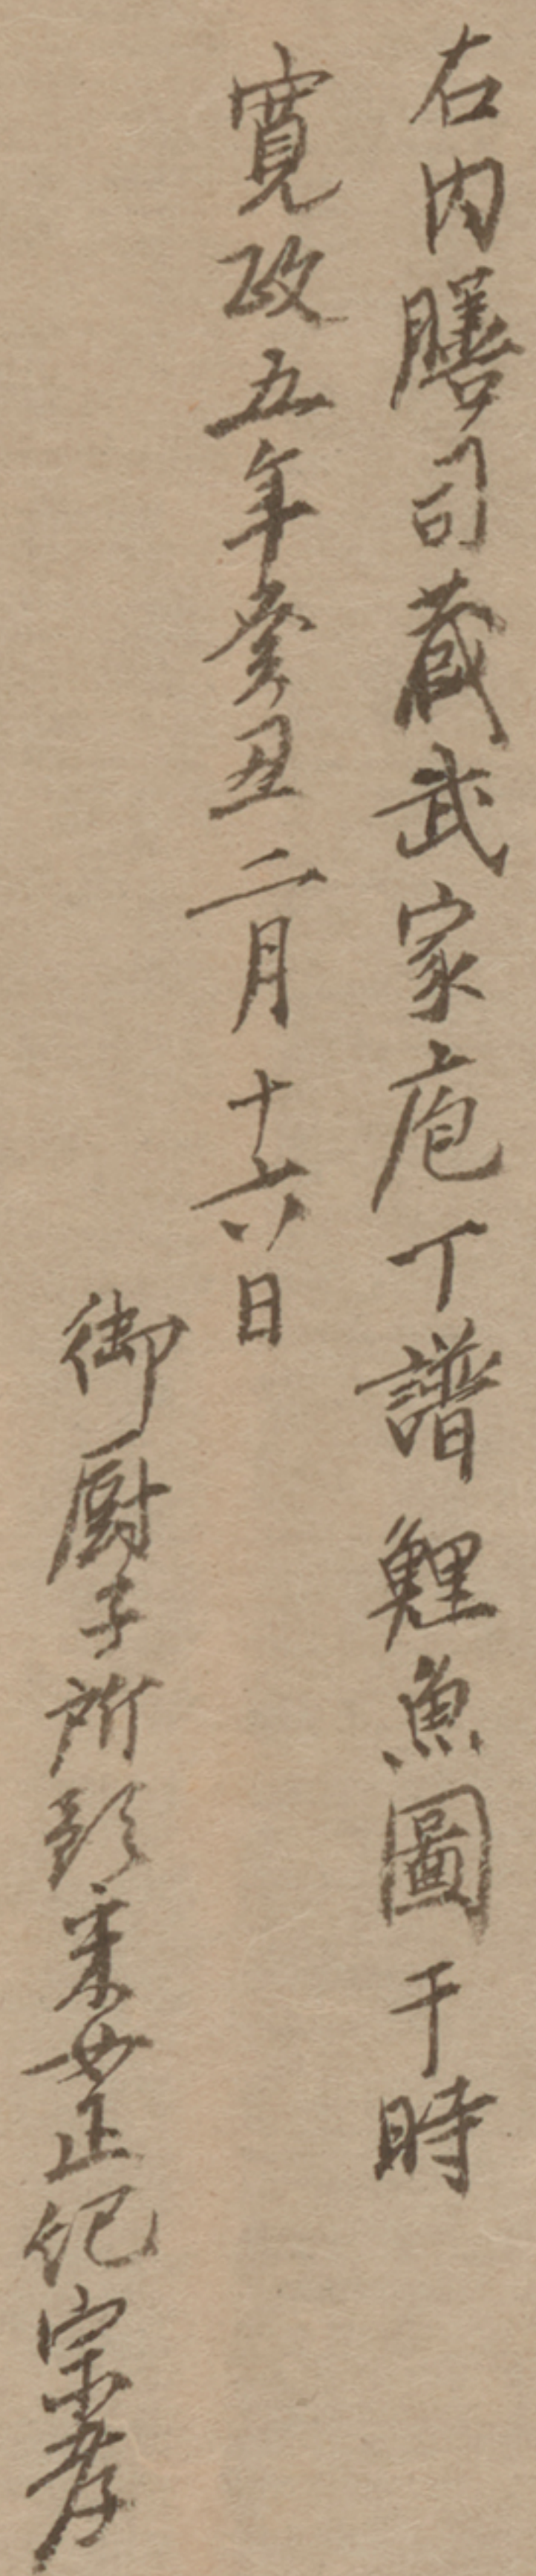 右内膳司蔵武家庖丁譜鯉魚圖于時
寛政五年癸丑二月十六日
御厨子所預采女正紀宗孝